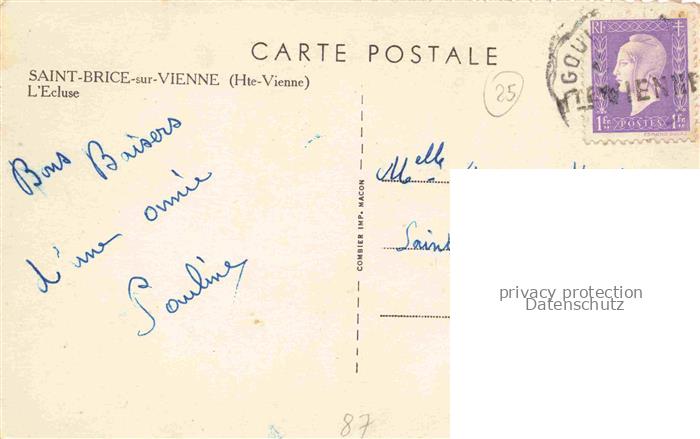 CARTE POSTALE
SAINT-BRICE-sur-VIENNE (Hte-Vienne)
L'Ecluse
25
RF
1 Fr POSTES 1 Fr
GOU
HTE VIENNE
Bons Baisers
d'une amie
Pauline
COMBIER IMP. MACON
Melle
Saint
privacy protection
Datenschutz
87